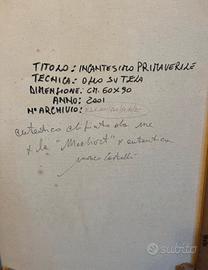 TITOLO: INCANTESIMO PRIMAVERILE
TECNICA: OLIO SU TELA
DIMENSIONE: CM. 60X90
ANNO: 2001
N° ARCHIVIO:
autentico dipinto da me
x la "Meeting" x autentica
subito